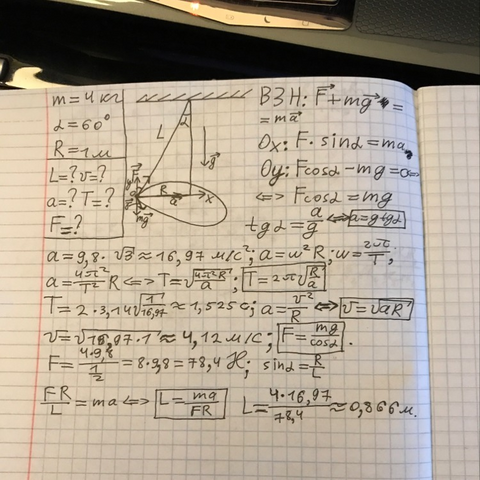 m = 4 кг
α = 60°
R = 1 м
L = ? v = ?
a = ? T = ?
F = ?
L
α
g⃗
F⃗
y
R
a⃗
x
mg⃗
ВЗН: F⃗ + mg⃗ =
= ma⃗
Ox: F · sinα = ma
Oy: Fcosα - mg = 0 ⇔
⇔ Fcosα = mg
tgα = a/g ⇔ a = g tgα
a = 9,8 · √3 ≈ 16,97 м/с²; a = ω²R; ω = 2π/T;
a = 4π²/T² R ⇔ T = √(4π²R/a); T = 2π√(R/a)
T = 2 · 3,14 √(1/16,97) ≈ 1,525 с; a = v²/R ⇔ v = √(aR)
v = √(16,97 · 1) ≈ 4,12 м/с; F = mg/cosα.
F = 4·9,8/(1/2) = 8·9,8 = 78,4 Н; sinα = R/L
FR/L = ma ⇔ L = ma/FR L = 4·16,97/78,4 ≈ 0,866 м.